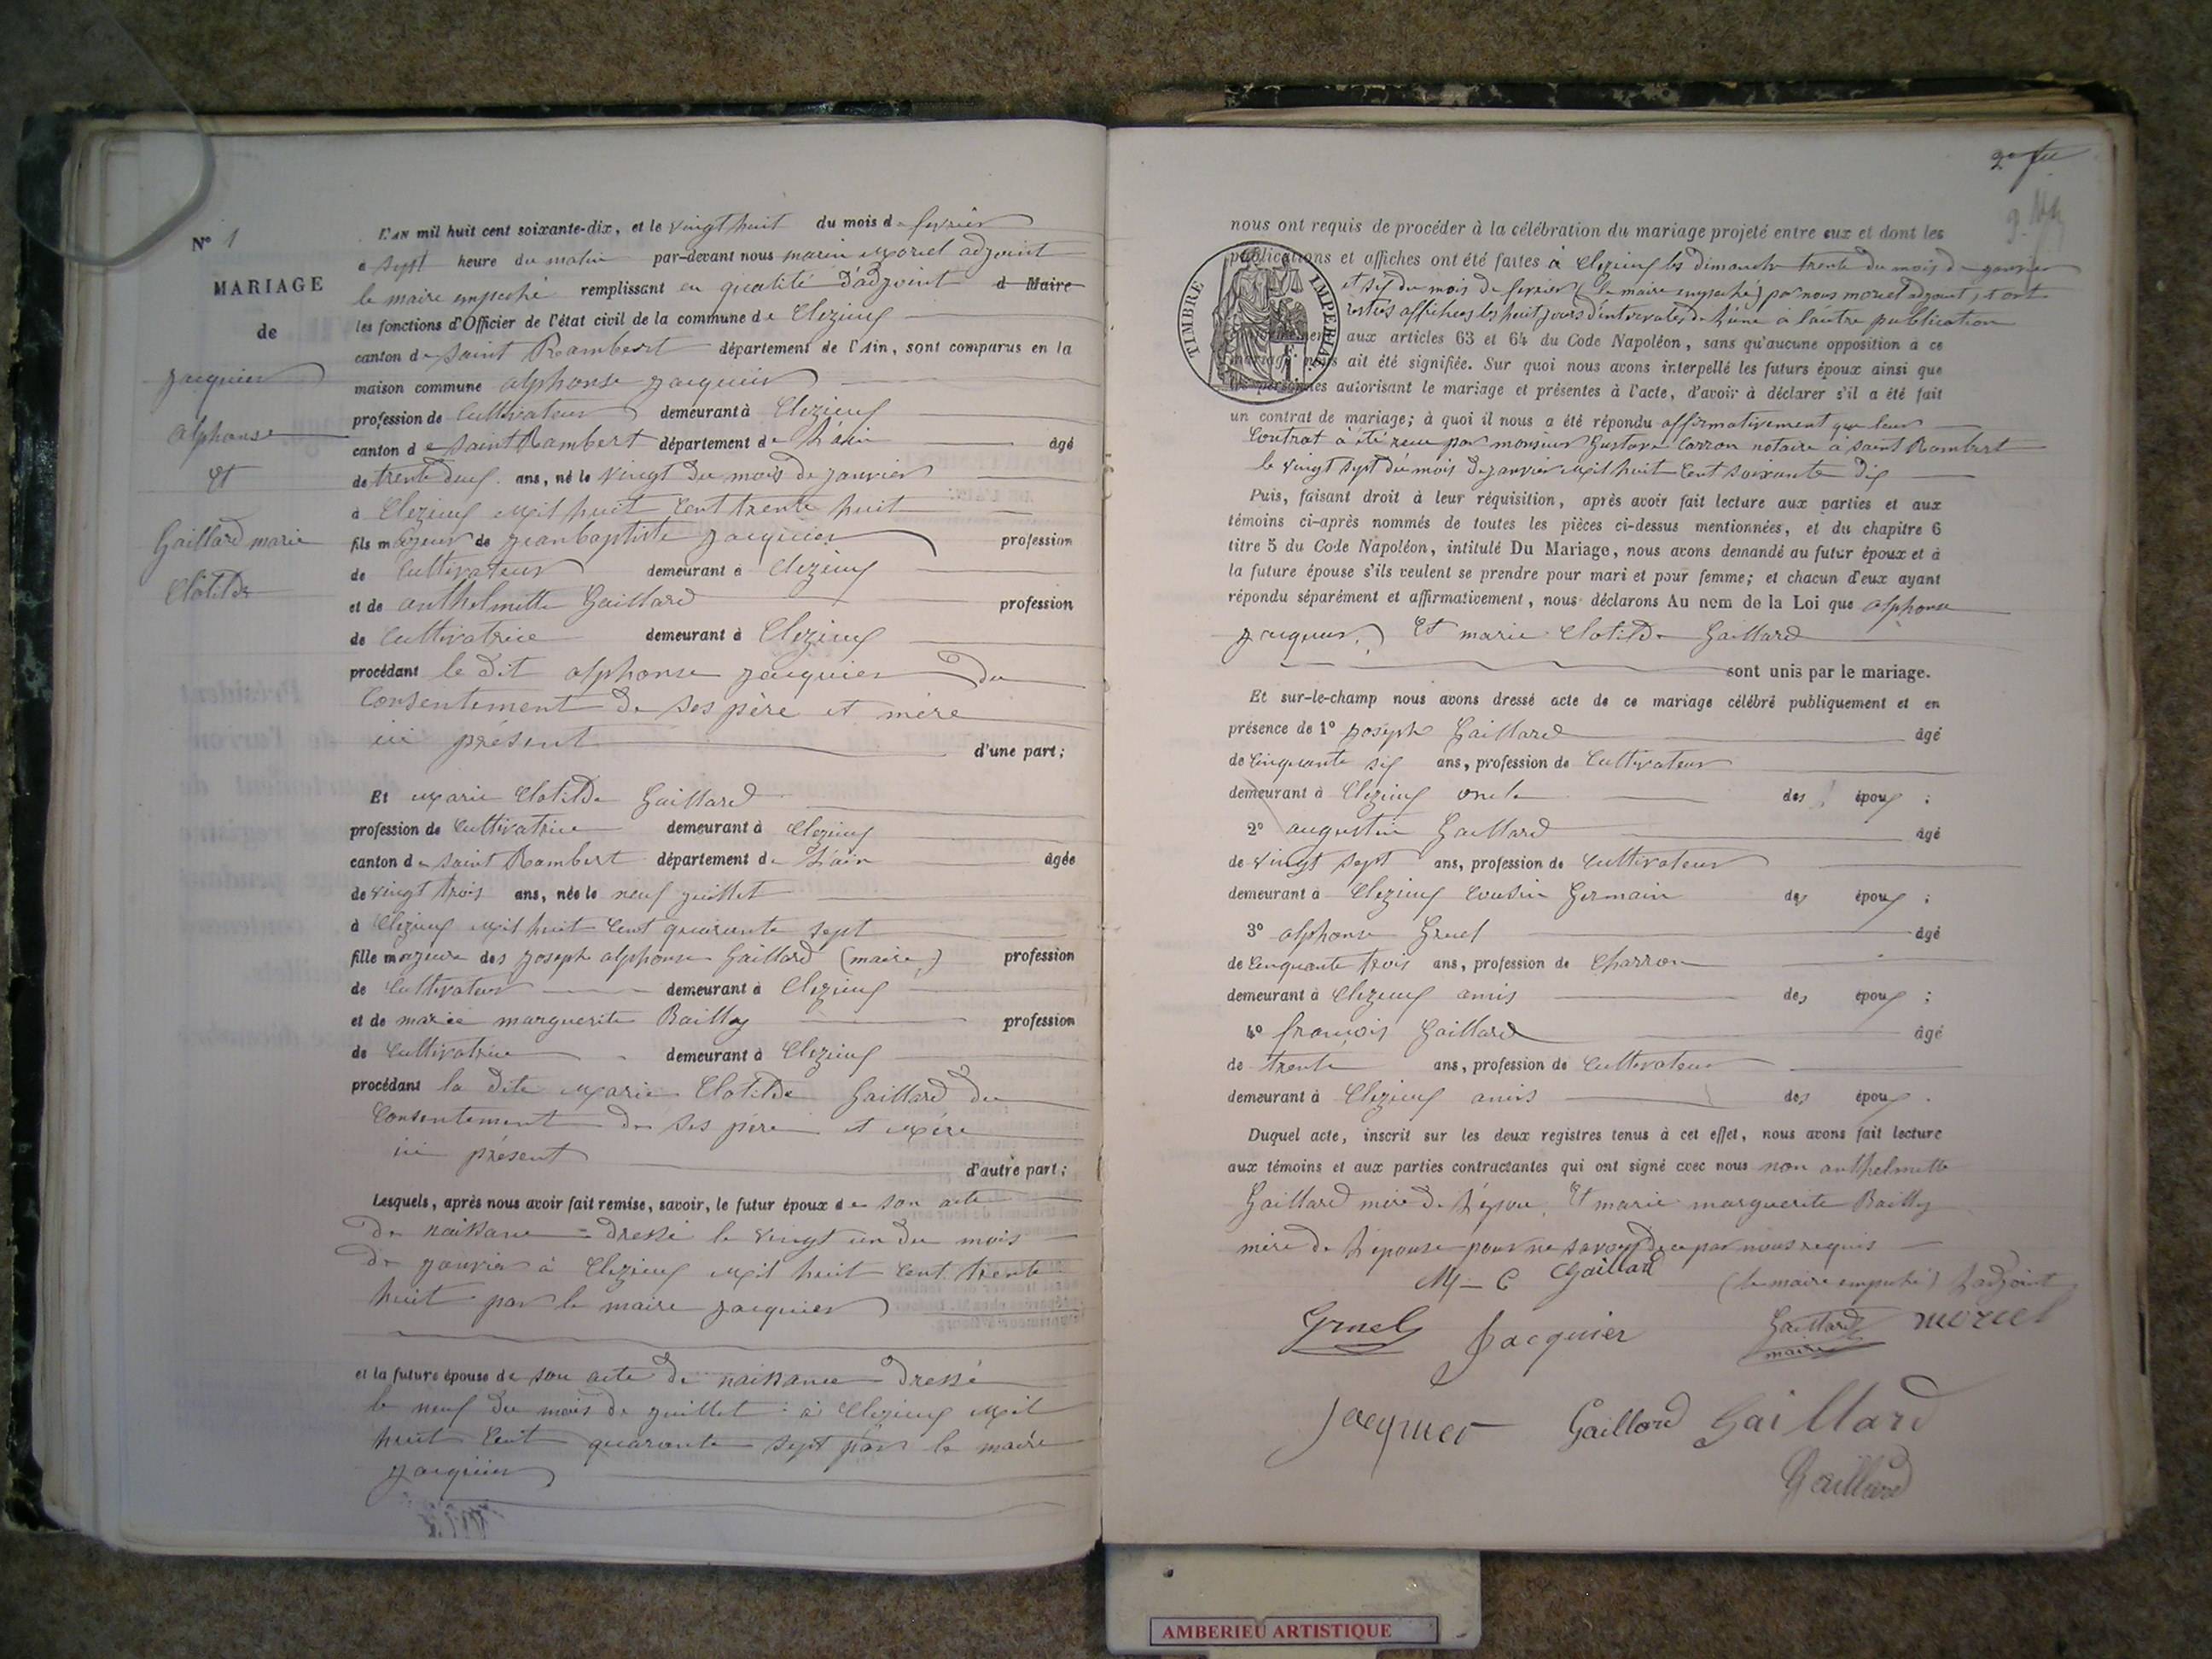 N° 1
MARIAGE
de
jacquier
alphonse
et
Gaillard marie
Clotilde
L'AN mil huit cent soixante-dix, et le vingt huit du mois de fevrier
à sept heure du matin par-devant nous marin Moriel adjoint
le maire empeché remplissant en qualité d'adjoint d Maire
les fonctions d'Officier de l'état civil de la commune de Clezieuf
canton de saint Rambert département de l'Ain, sont comparus en la
maison commune alphonse jacquier
profession de Cultivateur demeurant à Clezieuf
canton de saint Rambert département de L'ain âgé
de trente deuf ans, né le vingt du mois de janvier
à Clezieuf Mil huit Cent trente huit
fils majeur de jean baptiste jacquier profession
de Cultivateur demeurant à Clezieuf
et de anthelmette Gaillard profession
de Cultivatrice demeurant à Clezieuf
procédant le dit alphonse jacquier du
Consentement de ses père et mère
ici présent d'une part;
Et Marie Clotilde Gaillard
profession de Cultivatrice demeurant à Clezieuf
canton de saint Rambert département de L'ain âgée
de vingt trois ans, née le neuf juillet
à Clezieuf Mil huit Cent quarante sept
fille majeure des joseph alphonse Gaillard (maire) profession
de Cultivateur demeurant à Clezieuf
et de marie marguerite Bailly profession
de Cultivatrice demeurant à Clezieuf
procédant la dite Marie Clotilde Gaillard du
Consentement de ses père et Mère
ici présent d'autre part;
Lesquels, après nous avoir fait remise, savoir, le futur époux de son acte
de naissance = dressé le vingt un du mois
de janvier à Clezieuf Mil huit Cent trente
huit par le maire jacquier
et la future épouse de son acte de naissance dressé
le neuf du mois de juillet à Clezieuf Mil
huit Cent quarante sept par le maire
jacquier
2e fet
nous ont requis de procéder à la célébration du mariage projeté entre eux et dont les
publications et affiches ont été faites à Clezieuf les dimanche trente du mois de janvier
et sif du mois de fevrier (le maire empeché) par nous moriel adjoint, et ont
restés affichées les huit jours d'intervales de l'une à l'autre publication
aux articles 63 et 64 du Code Napoléon, sans qu'aucune opposition à ce
mariage nous ait été signifiée. Sur quoi nous avons interpellé les futurs époux ainsi que
les personnes autorisant le mariage et présentes à l'acte, d'avoir à déclarer s'il a été fait
un contrat de mariage; à quoi il nous a été répondu affirmativement que leur
Contrat à été reçu par monsieur Gustave Carron notaire à saint Rambert
le vingt sept du mois de janvier Mil huit Cent soixante dif
TIMBRE IMPERIAL
Puis, faisant droit à leur réquisition, après avoir fait lecture aux parties et aux
témoins ci-après nommés de toutes les pièces ci-dessus mentionnées, et du chapitre 6
titre 5 du Code Napoléon, intitulé Du Mariage, nous avons demandé au futur époux et à
la future épouse s'ils veulent se prendre pour mari et pour femme; et chacun d'eux ayant
répondu séparément et affirmativement, nous déclarons Au nom de la Loi que alphonse
jacquier, Et marie Clotilde Gaillard
sont unis par le mariage.
Et sur-le-champ nous avons dressé acte de ce mariage célébré publiquement et en
présence de 1° joseph Gaillard âgé
de Cinquante sif ans, profession de Cultivateur
demeurant à Clezieuf oncle des épouf ;
2° augustin Gaillard âgé
de vingt sept ans, profession de Cultivateur
demeurant à Clezieuf Cousin Germain des épouf ;
3° alphonse Gruel âgé
de Cinquante trois ans, profession de Charron
demeurant à Clezieuf amis des épouf ;
4° françois Gaillard âgé
de trente ans, profession de Cultivateur
demeurant à Clezieuf amis des épouf .
Duquel acte, inscrit sur les deux registres tenus à cet effet, nous avons fait lecture
aux témoins et aux parties contractantes qui ont signé avec nous non anthelmette
Gaillard mère de L'epou, Et marie marguerite Bailly
mère de L'epouse pour ne savoir de ce par nous requis
M – C Gaillard (le maire empeché) L'adjoint
Gruel Jacquier Gaillard maire moriel
jacquier Gaillard Gaillard
Gaillard
AMBERIEU ARTISTIQUE